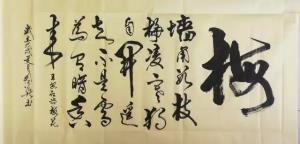 梅
墙角数枝
梅凌寒独
自开遥
知不是雪
为有暗香
来 王安石咏梅花